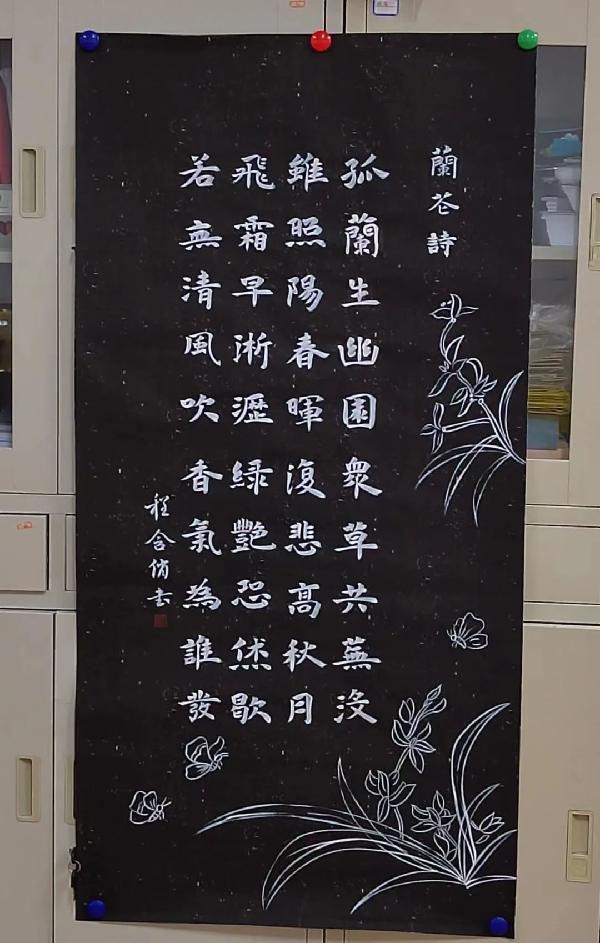 蘭花詩
孤蘭生幽園衆草共蕪沒
雖照陽春暉復悲高秋月
飛霜早淅瀝綠艷恐休歇
若無清風吹香氣為誰發
程含俏书